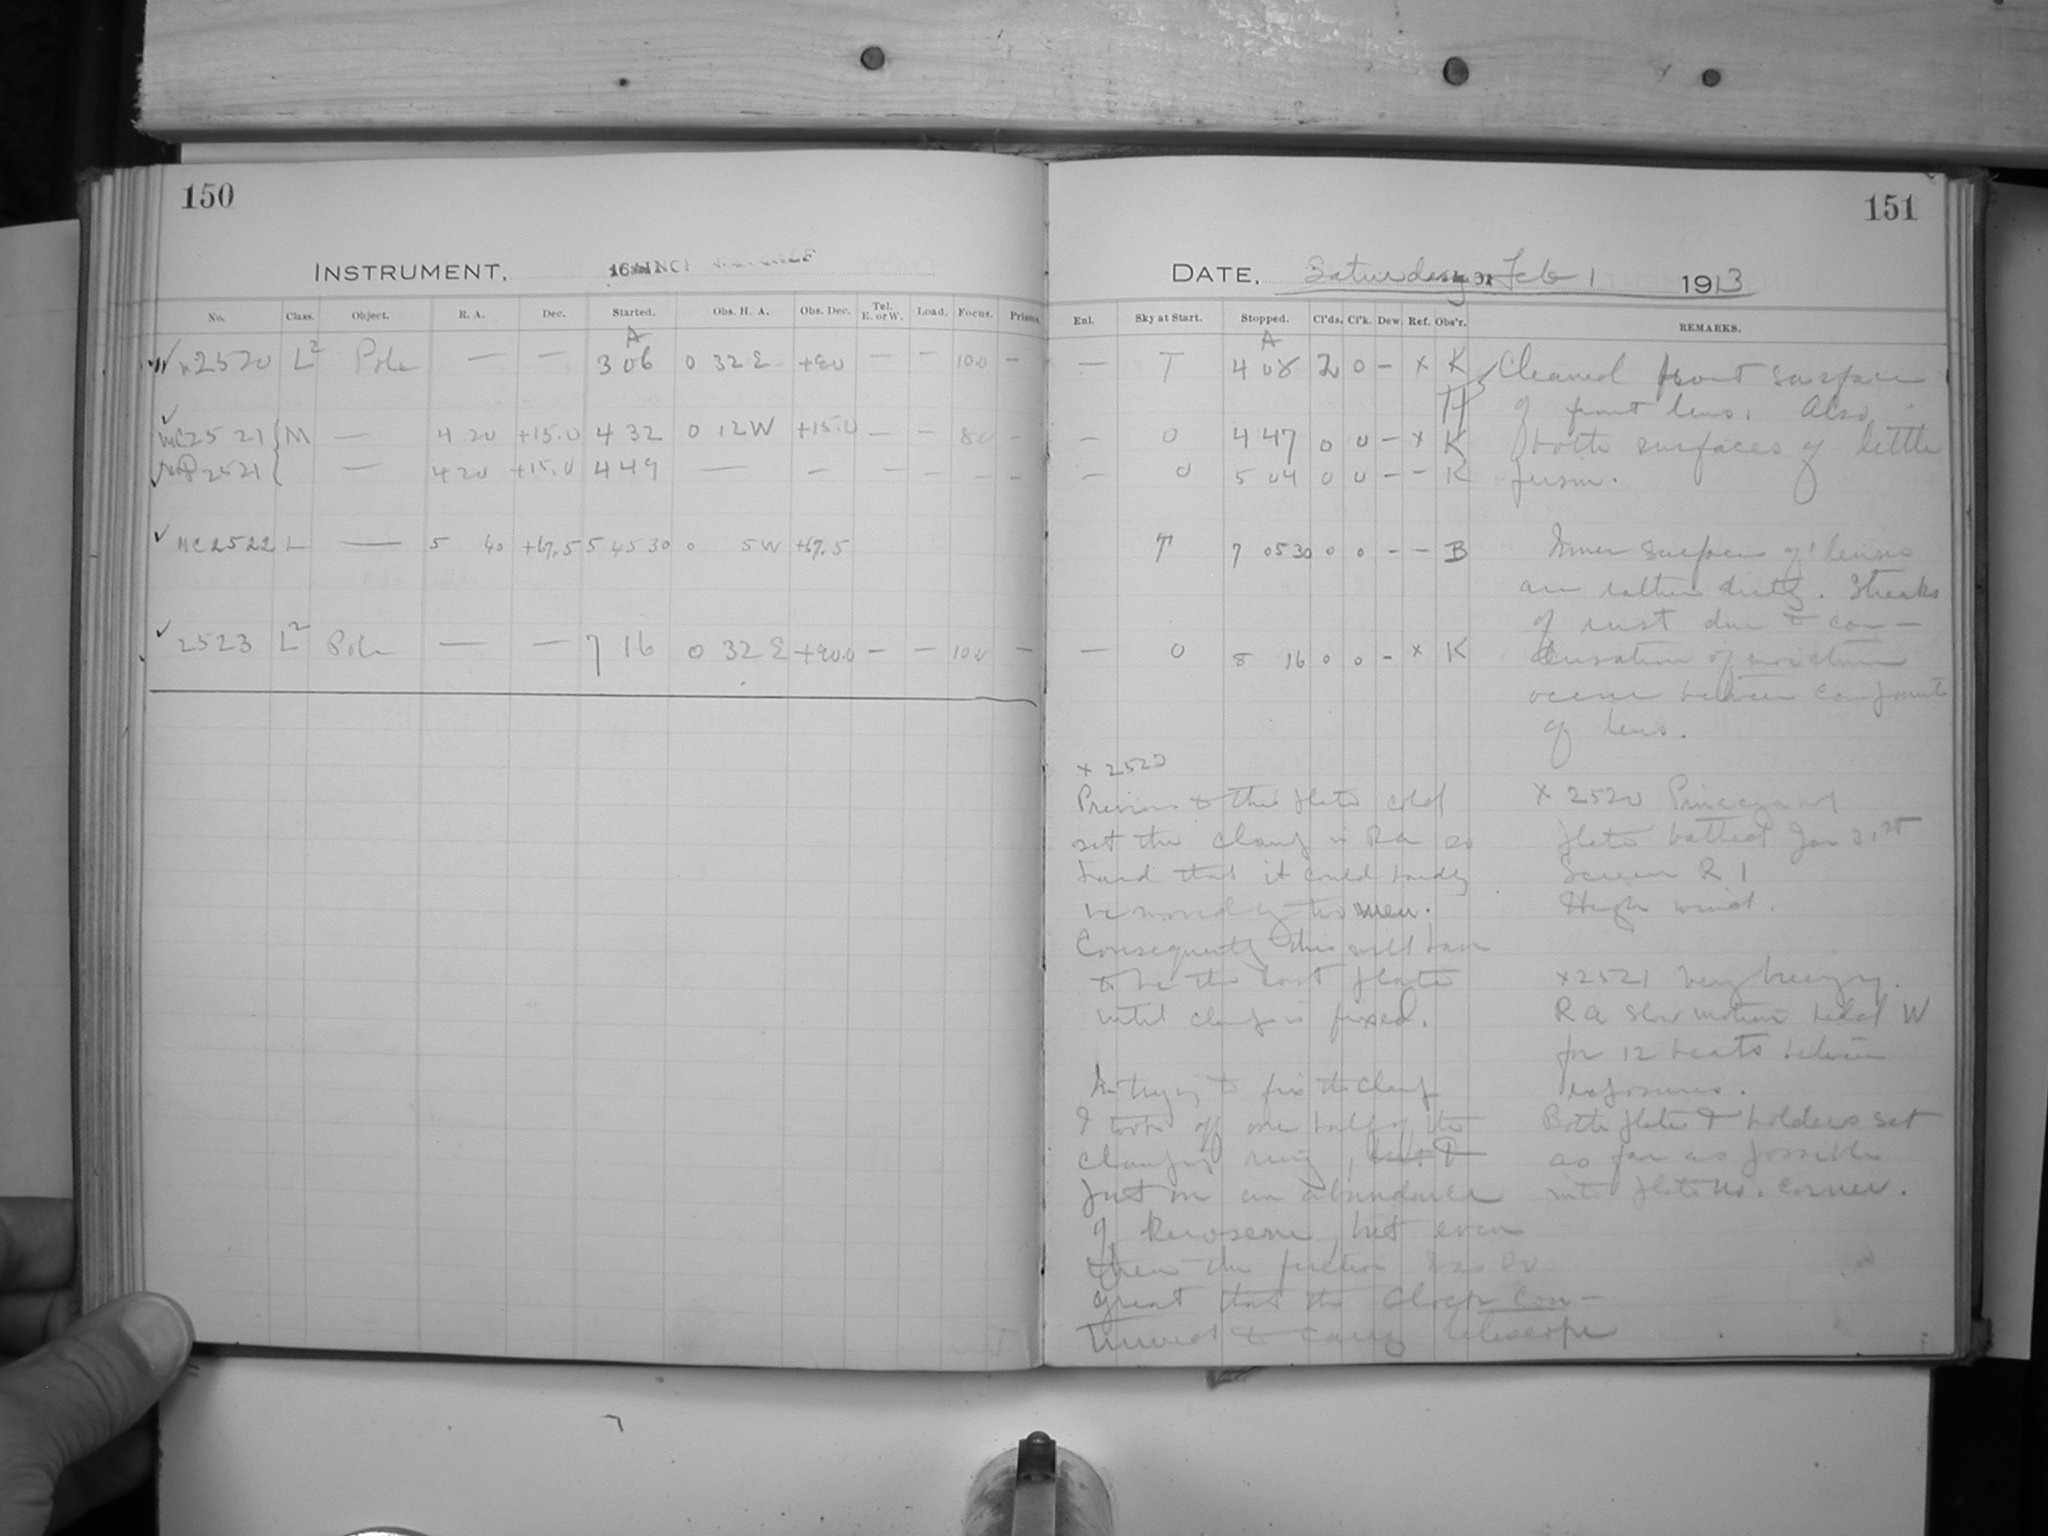 150
INSTRUMENT, 16 INCH METCALF
No. Class. Object. R. A. Dec. Started. Obs. H. A. Obs. Dec. Tel. E. or W. Load. Focus. Prisms.
A
2520 L2 Pole — — 3 06 0 32 E +90 — — 10.0 —
MC2521 M — 4 20 +15.0 4 32 0 12 W +15.0 — — 8.0 —
2521 — 4 20 +15.0 4 49 — — — — — —
MC2522 L — 5 40 +67.5 5 45 30 0 5 W +67.5
2523 L2 Pole — — 7 16 0 32 E +90.0 — — 10.0 —
151
DATE, Saturday Feb 1 1913
Enl. Sky at Start. Stopped. Cl'ds. Cl'k. Dew. Ref. Obs'r. REMARKS.
A
— T 4 08 2 0 – x K
H
— 0 4 47 0 0 – x K
— 0 5 04 0 0 – – K
T 7 05 30 0 0 – – B
— 0 8 16 0 0 – x K
Cleaned front surface
of front lens. Also,
both surfaces of little
prism.
Inner surfaces of lenses
are rather dirty. Streaks
of rust due to con-
densation of moisture
occur between components
of lens.
x 2520
Previous to this plate cold
set the clamp in RA so
hard that it could hardly
be moved by two men.
Consequently this will have
to be the last plate
until clamp is fixed.
In trying to fix the clamp
I took off one half of the
clamping ring,
put on an abundance
of kerosene, but even
then the friction was so
great that the clock con-
tinued to carry telescope
x 2520
plate bathed Jan 31st
Screen R 1
High wind.
x2521 Very breezy.
RA slow motion held W
for 12 beats between
exposures.
Both plates & holders set
as far as possible
into plate no. corner.